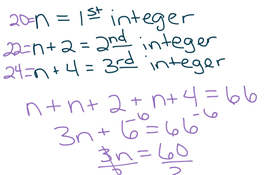 20=n = 1st integer
22=n+2 = 2nd integer
24=n+4 = 3rd integer
n + n + 2 + n + 4 = 66
3n + 6 -6 = 66 -6
3n = 60
3 3